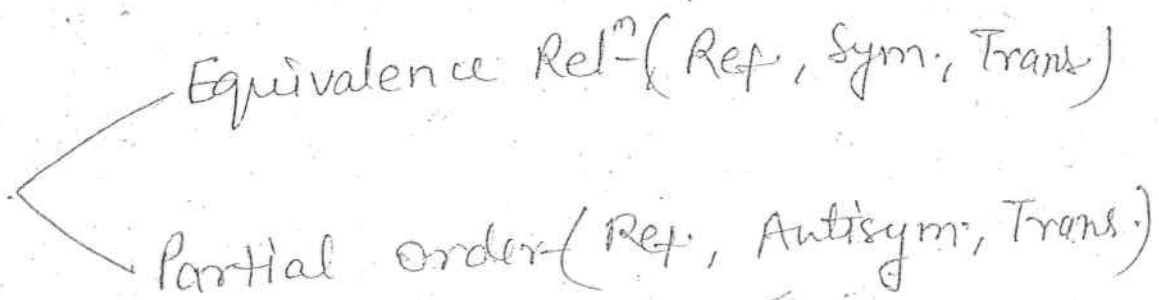 Equivalence Relⁿ (Ref, Sym., Trans)
Partial order (Ref, Antisym., Trans.)